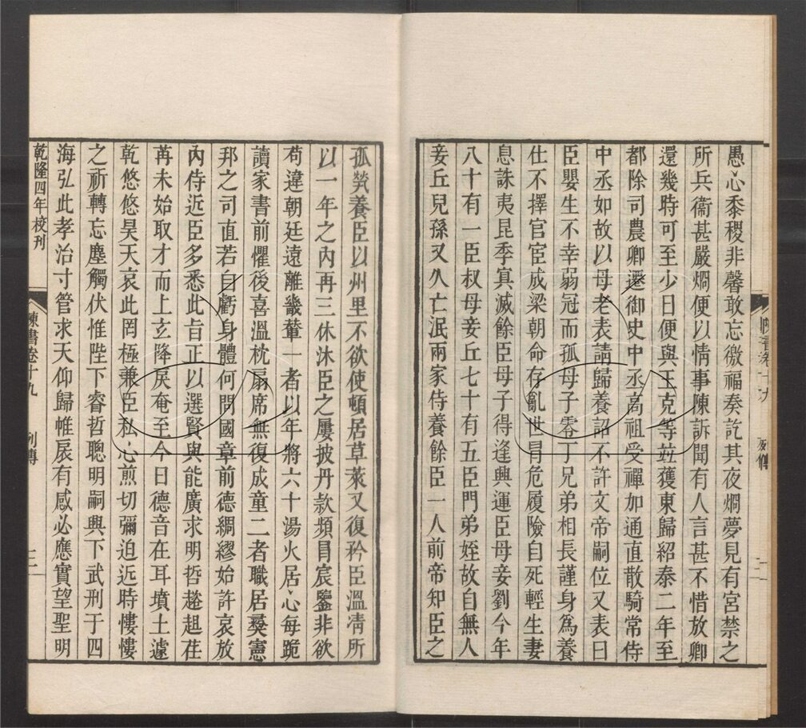 愚心黍稷非馨敢忘徼福奏訖其夜烱夢見有宮禁之
所兵衞甚嚴烱便以情事陳訴聞有人言甚不惜放卿
還幾時可至少日便與王克等竝獲東歸紹泰二年至
都除司農卿遷御史中丞高祖受禪加通直散騎常侍
中丞如故以母老表請歸養詔不許文帝嗣位又表曰
臣嬰生不幸弱冠而孤母子零丁兄弟相長謹身爲養
仕不擇官宦成梁朝命存亂世冒危履險自死輕生妻
息誅夷昆季㝠滅餘臣母子得逢興運臣母妾劉今年
八十有一臣叔母妾丘七十有五臣門弟姪故自無人
妾丘兒孫又久亡泯兩家侍養餘臣一人前帝知臣之
陳書卷十九 列傳
孤煢養臣以州里不欲使頓居草萊又復矜臣溫凊所
以一年之內再三休沐臣之屢披丹款頻冒宸鑒非欲
苟違朝廷遠離畿輦一者以年將六十湯火居心每跪
讀家書前懼後喜溫枕扇席無復成童二者職居彝憲
邦之司直若自虧身體何問國章前德綢繆始許哀放
內侍近臣多悉此旨正以選賢與能廣求明哲趑趄荏
苒未始取才而上玄降戾奄至今日德音在耳墳土遽
乾悠悠昊天哀此罔極兼臣私心煎切彌迫近時慺慺
之祈轉忘塵觸伏惟陛下睿哲聰明嗣興下武刑于四
海弘此孝治寸管求天仰歸帷扆有感必應實望聖明
乾隆四年校刊
陳書卷十九 列傳 三